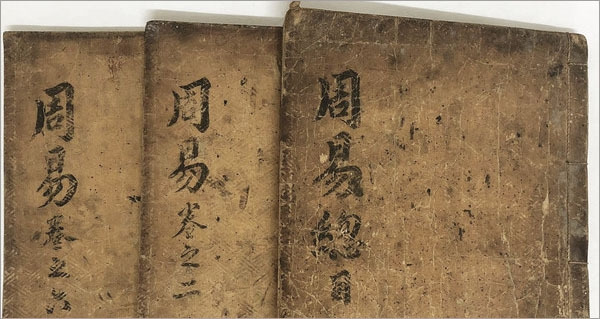 周易總目
周易卷之二
周易卷之六